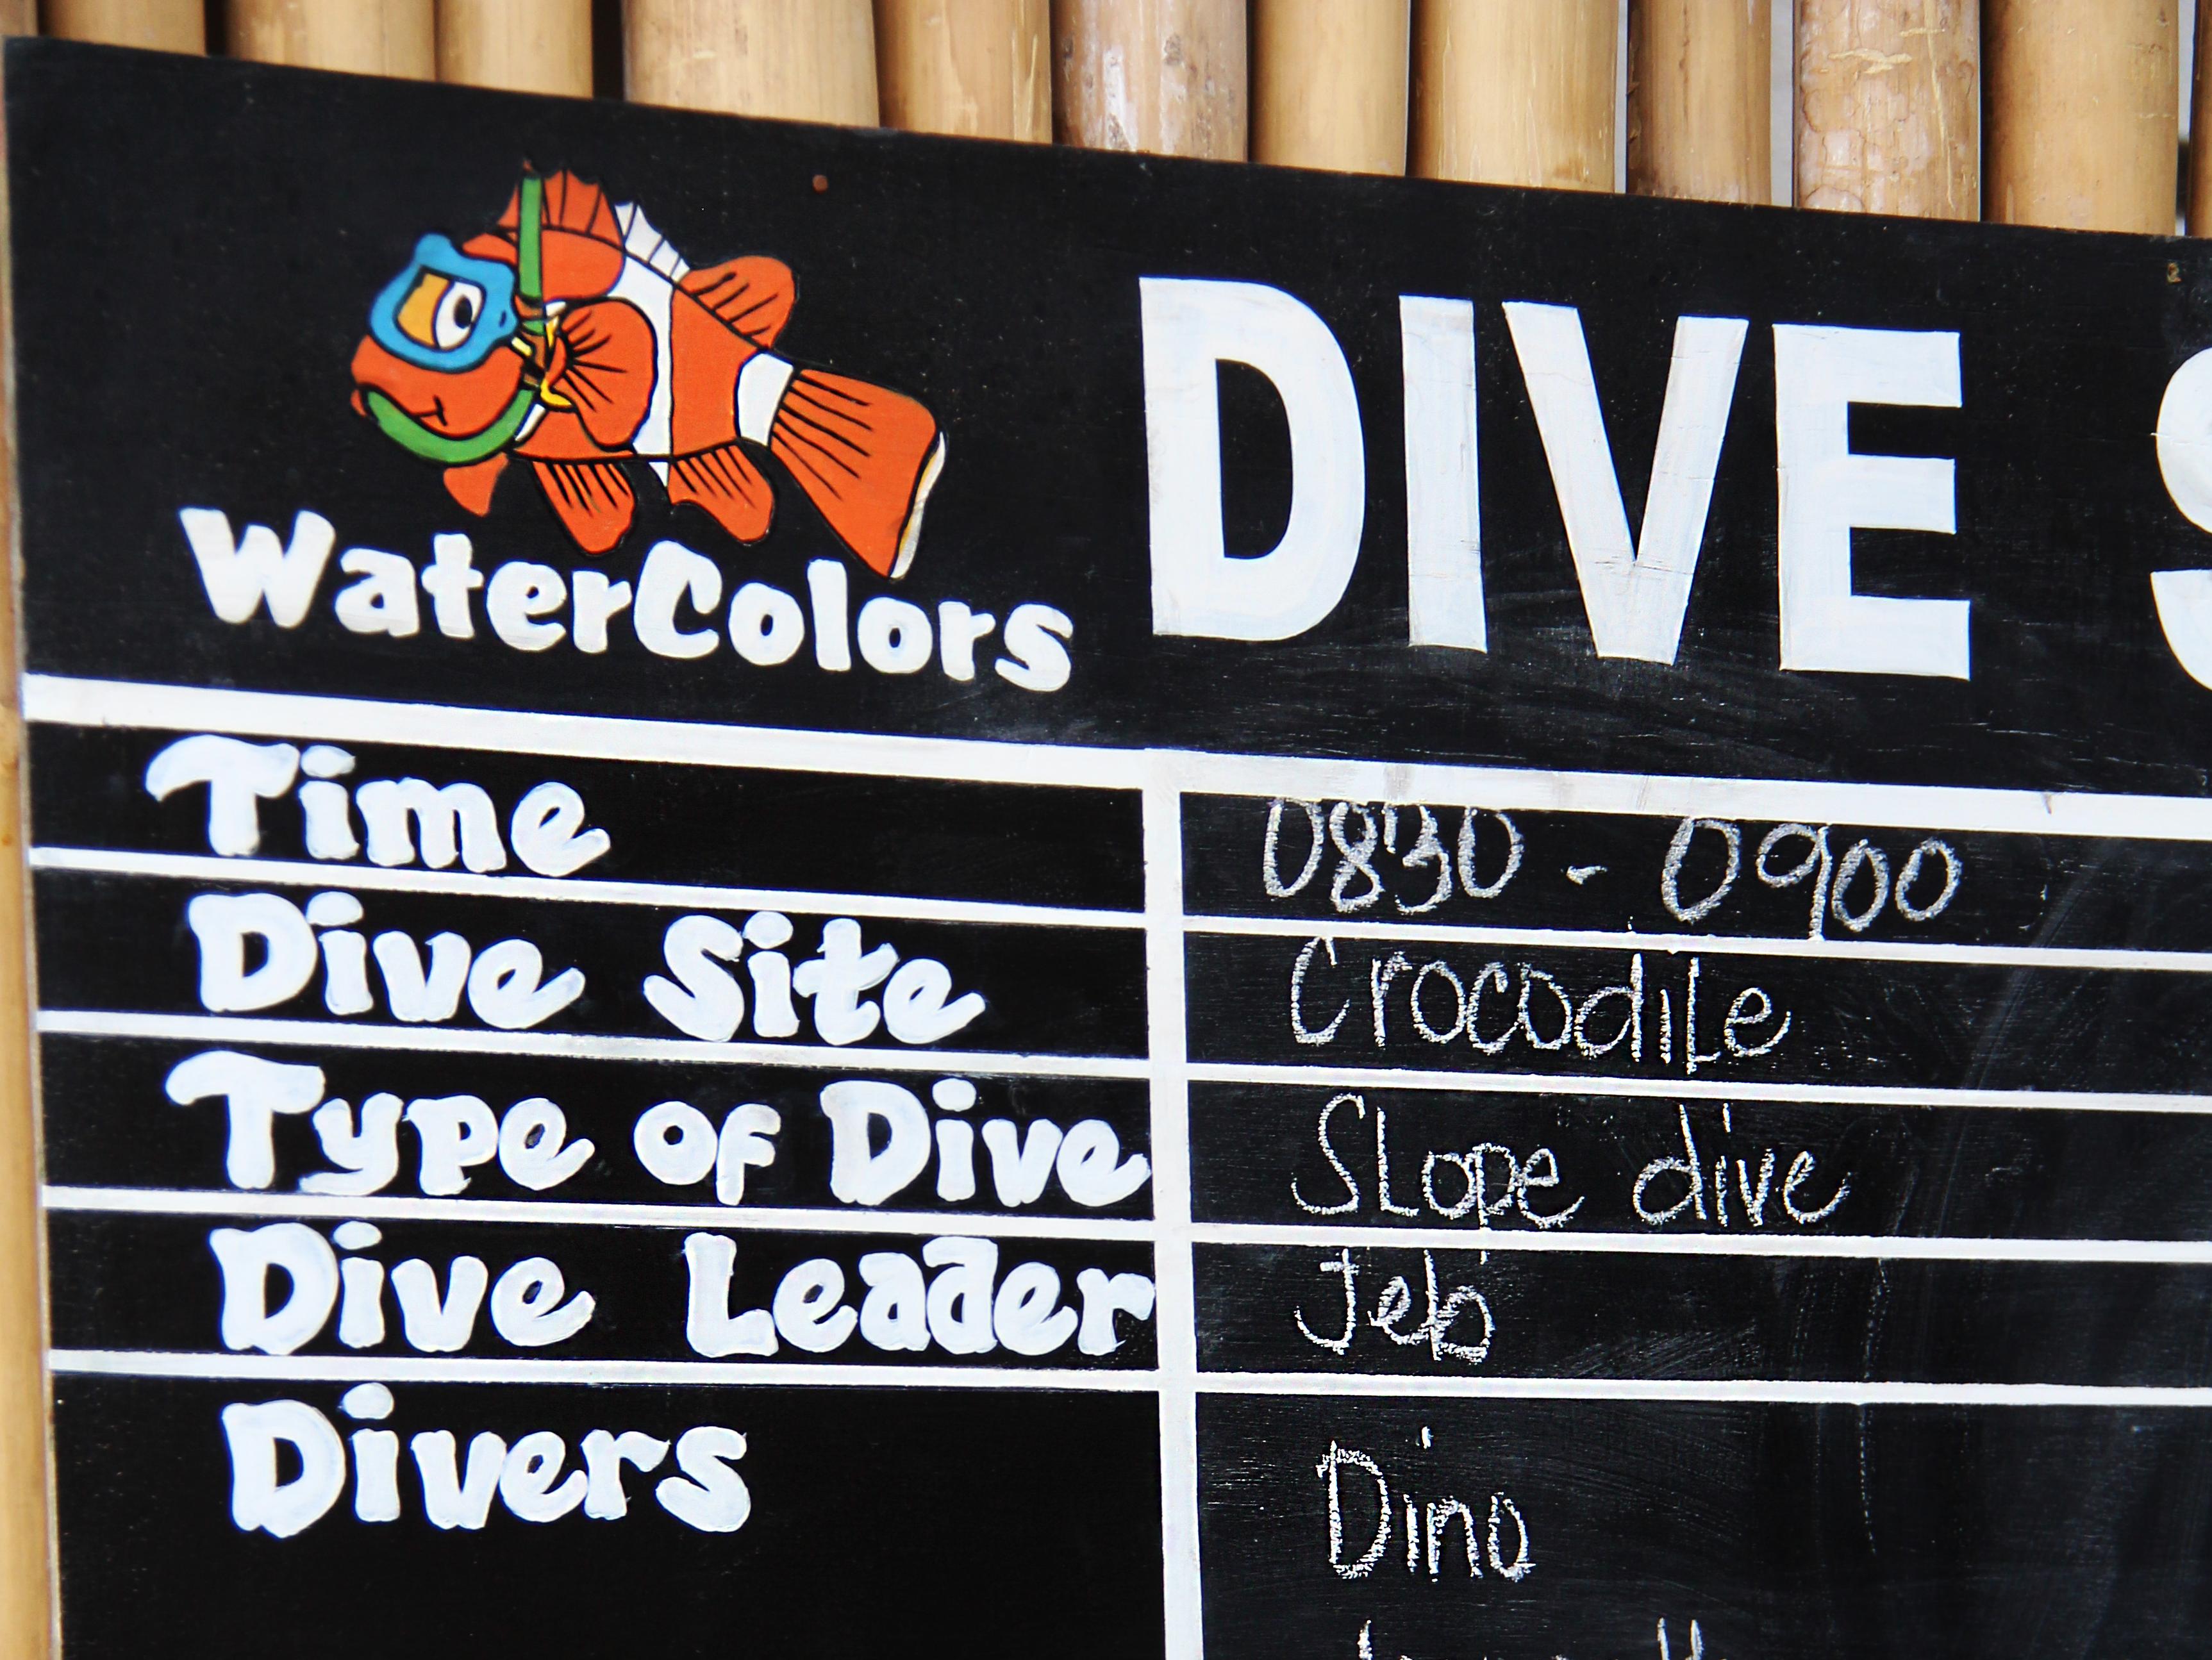 WaterColors
DIVE S
Time 0830 - 0900
Dive Site Crocodile
Type of Dive Slope dive
Dive Leader Jeb
Divers Dino